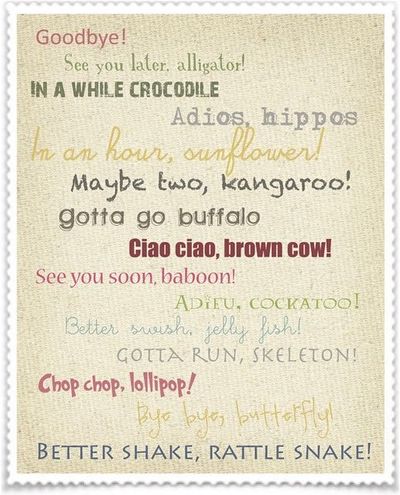 Goodbye!
See you later, alligator!
IN A WHILE CROCODILE
Adios, hippos
In an hour, sunflower!
Maybe two, kangaroo!
gotta go buffalo
Ciao ciao, brown cow!
See you soon, baboon!
ADIFU, COCKATOO!
Better swish, jelly fish!
GOTTA RUN, SKELETON!
Chop chop, lollipop!
Bye bye, butterfly!
BETTER SHAKE, RATTLE SNAKE!